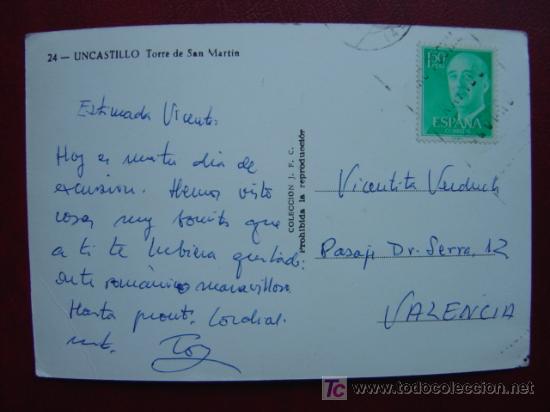 24 — UNCASTILLO Torre de San Martín
Estimada Vicenta:
Hoy es nuestro día de
excursión. Hemos visto
cosas muy bonitas que
a ti te hubiera gustado:
arte románico maravilloso
Hasta pronto. Cordial
COLECCION J. F. C.
Prohibida la reproducción
1,50
PTAS
ESPAÑA
CORREOS
Vicentita
Pasaje Dr. Serra, 12
VALENCIA
TC todocoleccion
www.todocoleccion.net